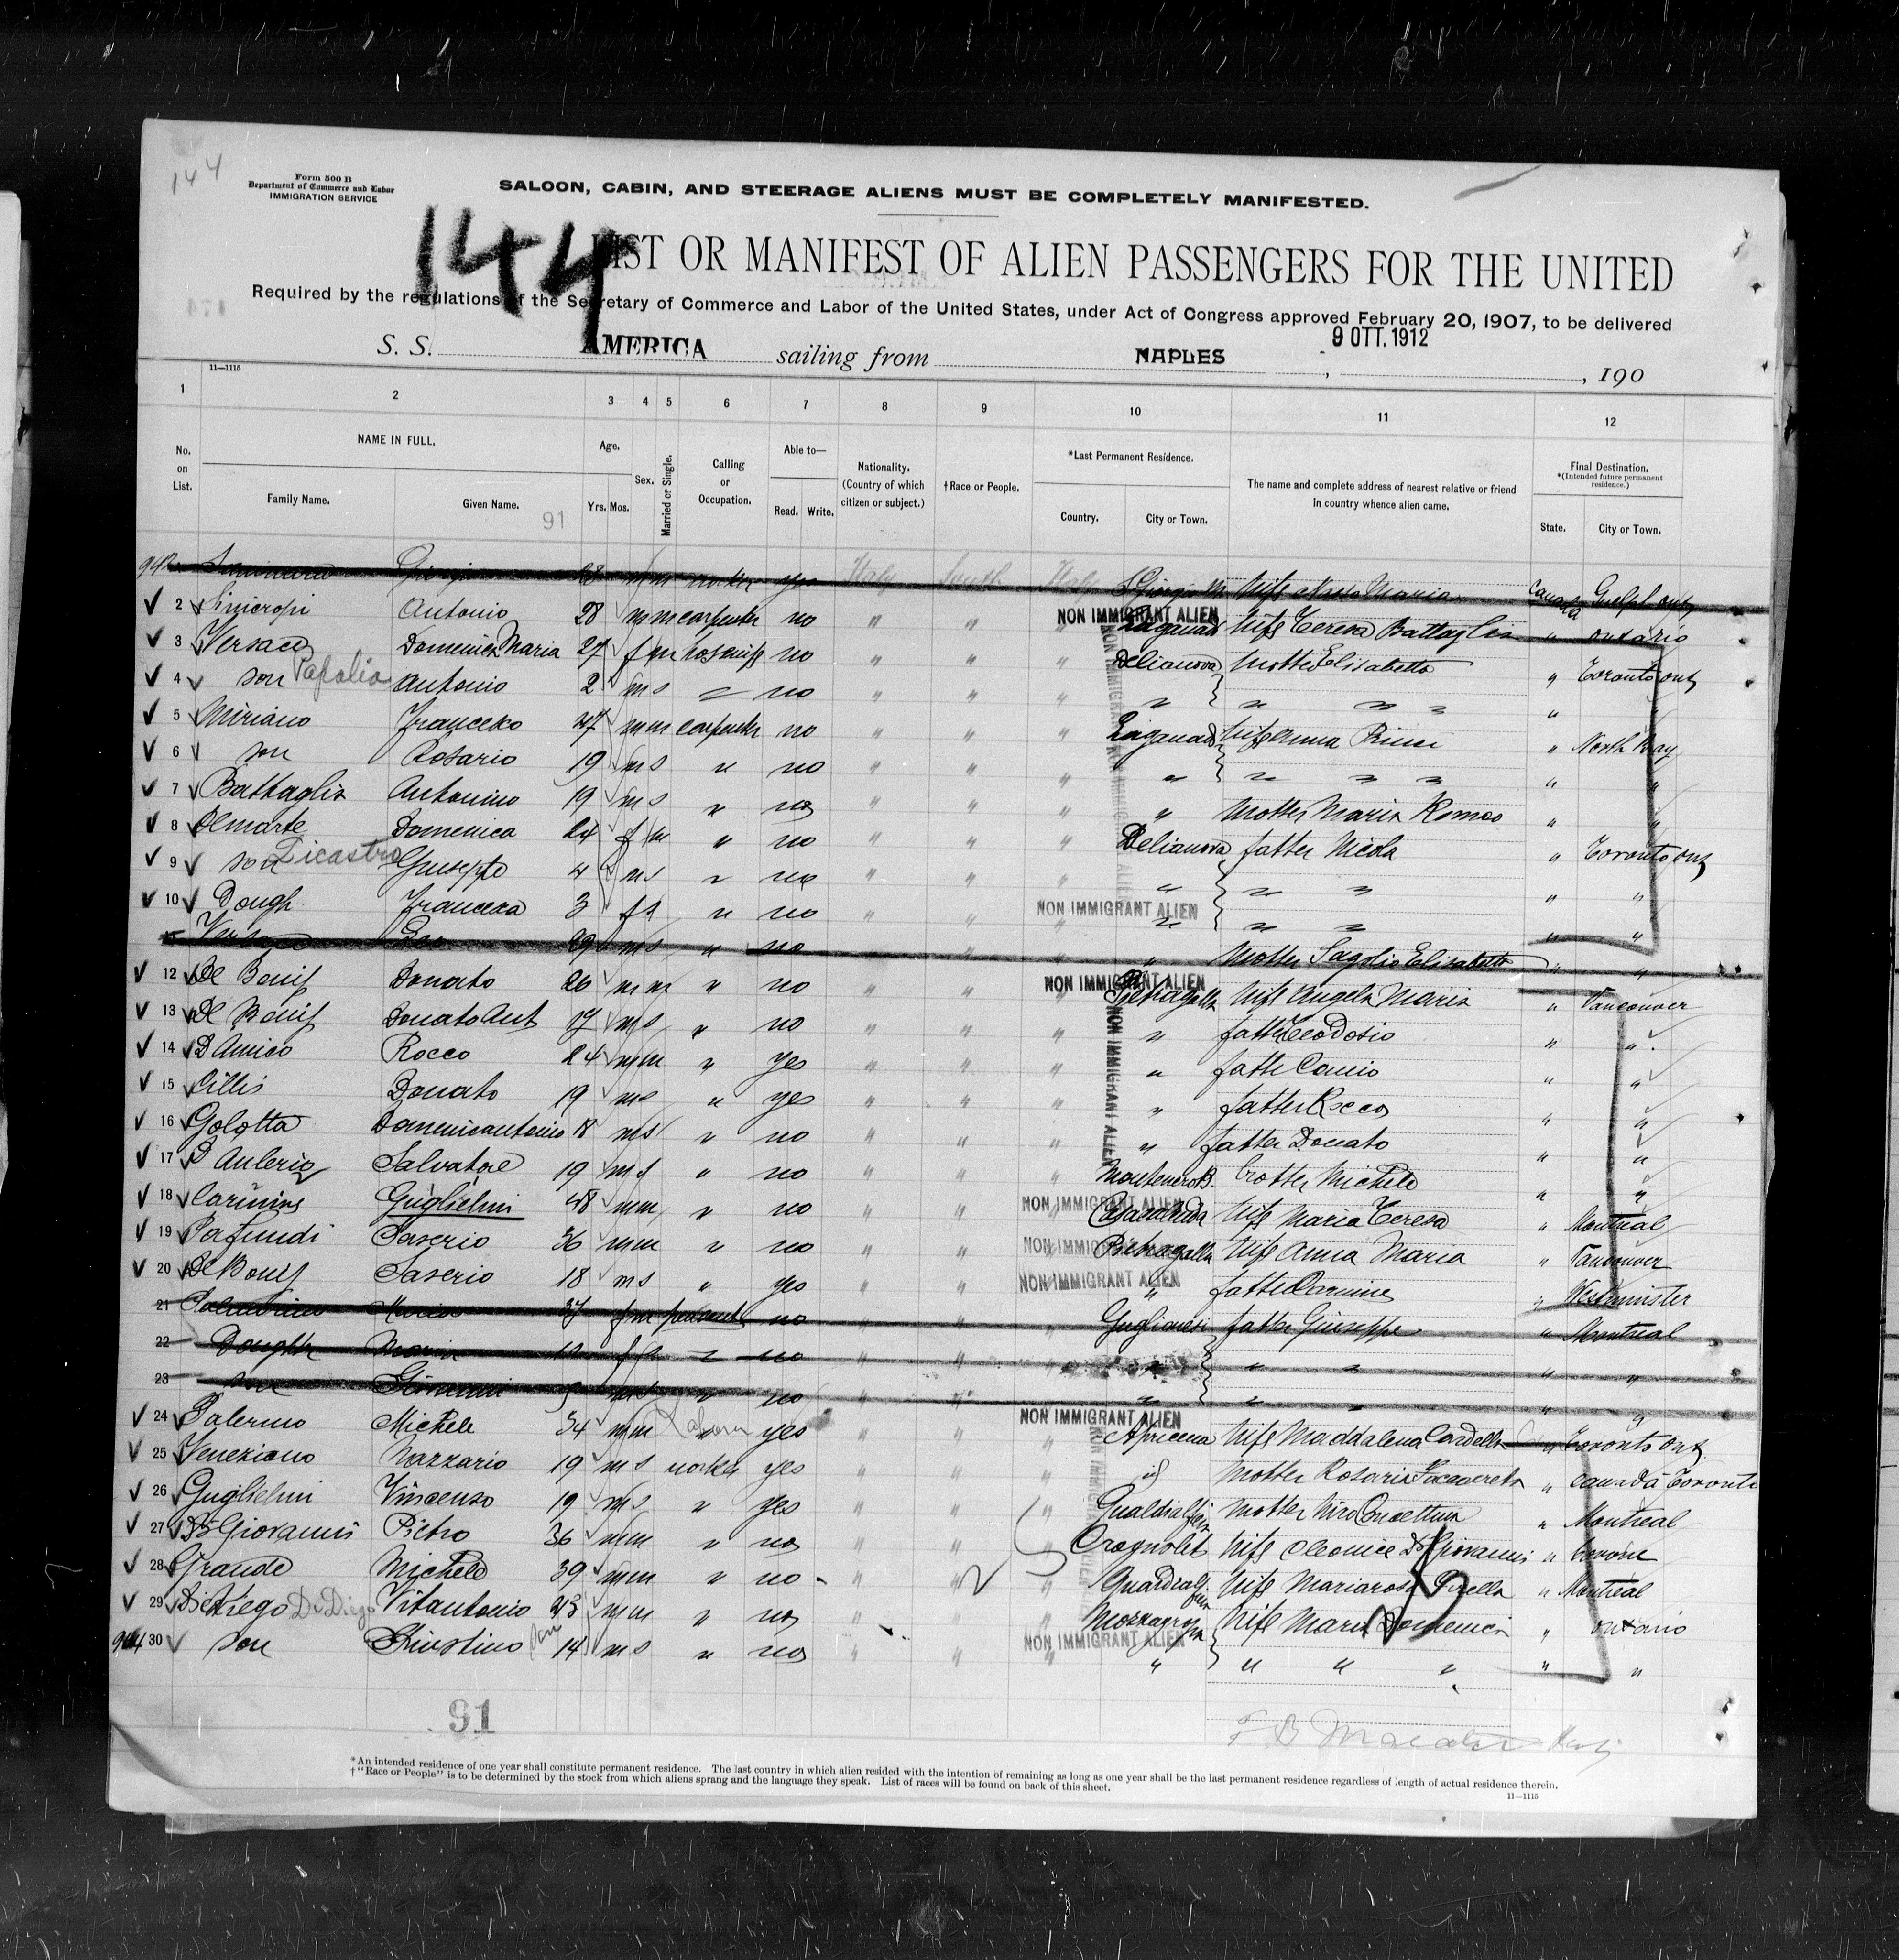 144
Form 500 B
Department of Commerce and Labor
IMMIGRATION SERVICE
SALOON, CABIN, AND STEERAGE ALIENS MUST BE COMPLETELY MANIFESTED.
144
LIST OR MANIFEST OF ALIEN PASSENGERS FOR THE UNITED
Required by the regulations of the Secretary of Commerce and Labor of the United States, under Act of Congress approved February 20, 1907, to be delivered
S. S. AMERICA sailing from NAPLES, 9 OTT. 1912, 190
11—1115
1 2 3 4 5 6 7 8 9 10 11 12
No. on List. NAME IN FULL. Family Name. Given Name. 91 Age. Yrs. Mos. Sex. Married or Single. Calling or Occupation. Able to— Read. Write. Nationality. (Country of which citizen or subject.) †Race or People. *Last Permanent Residence. Country. City or Town. The name and complete address of nearest relative or friend in country whence alien came. Final Destination. *(Intended future permanent residence.) State. City or Town.
28 m m worker yes Italy South Italy S Giorgio M Wife Maria Canada Guelph ont
NON IMMIGRANT ALIEN
2 Sinicropi Antonio 28 m m carpenter no " " " Laganadi Wife Teresa Battaglia " ontario
3 Versace Domenica Maria 27 f m no " " " Delianova Mother Elisabetta " Toronto ont
4 son Papalia Antonio 2 m s " no " " " " " " " " "
5 Miriano Francesco 47 m m carpenter no " " " Laganadi Wife Anna " North Bay
6 son Rosario 19 m s " no " " " " " " " " "
7 Battaglia Antonino 19 m s " no " " " " Mother Maria Romeo " "
8 Demarte Domenica 24 f m " no " " " Delianova father Nicola " Toronto ont
9 son Licastro Giuseppe 4 m s " no " " " " " " " "
10 Dough Francesca 3 f s " no " " " " " " " "
NON IMMIGRANT ALIEN
29 m s " no " " " " Mother Elisabetta " "
NON IMMIGRANT ALIEN
12 De Bonis Donato 26 m m " no " " " Pietragalla Wife Angela Maria " Vancouver
13 De Bonis Donato Ant 17 m s " no " " " " father Teodosio " "
14 D Amico Rocco 24 m m " yes " " " " " "
15 Cillis Donato 19 m s " yes " " " " father Rocco " "
16 Golotta Domenicantonio 18 m s " no " " " " father Donato " "
17 Salvatore 19 m s " no " " " Montenero B. Michele " "
18 Guglielmi 48 m m " no " " " Casacalenda Wife Maria Teresa " Montreal
NON IMMIGRANT ALIEN
19 Pafundi Saserio 36 m m " no " " " Pietragalla Wife Anna Maria " Vancouver
NON IMMIGRANT ALIEN
20 De Bonis Saserio 18 m s " yes " " " " " Westminster
NON IMMIGRANT ALIEN
21 Maria 37 f m peasant no " " " Guglionesi father Giuseppe " Montreal
22 Doughtr Maria f s " no " " " " " " " "
23 son Giovanni m s " no " " " " " " " "
NON IMMIGRANT ALIEN
24 Palermo Michele 34 m m Labour yes " " " Apricena Wife Maddalena Cardella " Toronto Ont
25 Veneziano Nazzario 19 m s worker yes " " " id Mother Rosaria " Canada Toronto
26 Guglielmi Vincenzo 19 m s " yes " " " Mother " Montreal
27 Di Giovanni Pietro 36 m m " no " " " Wife Cleonice Di Giovanni "
28 Grande Michele 39 m m " no " " " Wife Mariarosa " Montreal
29 Di Diego Vitantonio 43 m m " no " " " Mozzagrogna Wife Maria Domenica " ontario
NON IMMIGRANT ALIEN
30 son Giustino son 14 m s " no " " " " " " " " "
NON IMMIGRANT ALIEN
NON IMMIGRANT ALIEN
91
*An intended residence of one year shall constitute permanent residence. The last country in which alien resided with the intention of remaining as long as one year shall be the last permanent residence regardless of length of actual residence therein.
†"Race or People" is to be determined by the stock from which aliens sprang and the language they speak. List of races will be found on back of this sheet.
11—1115